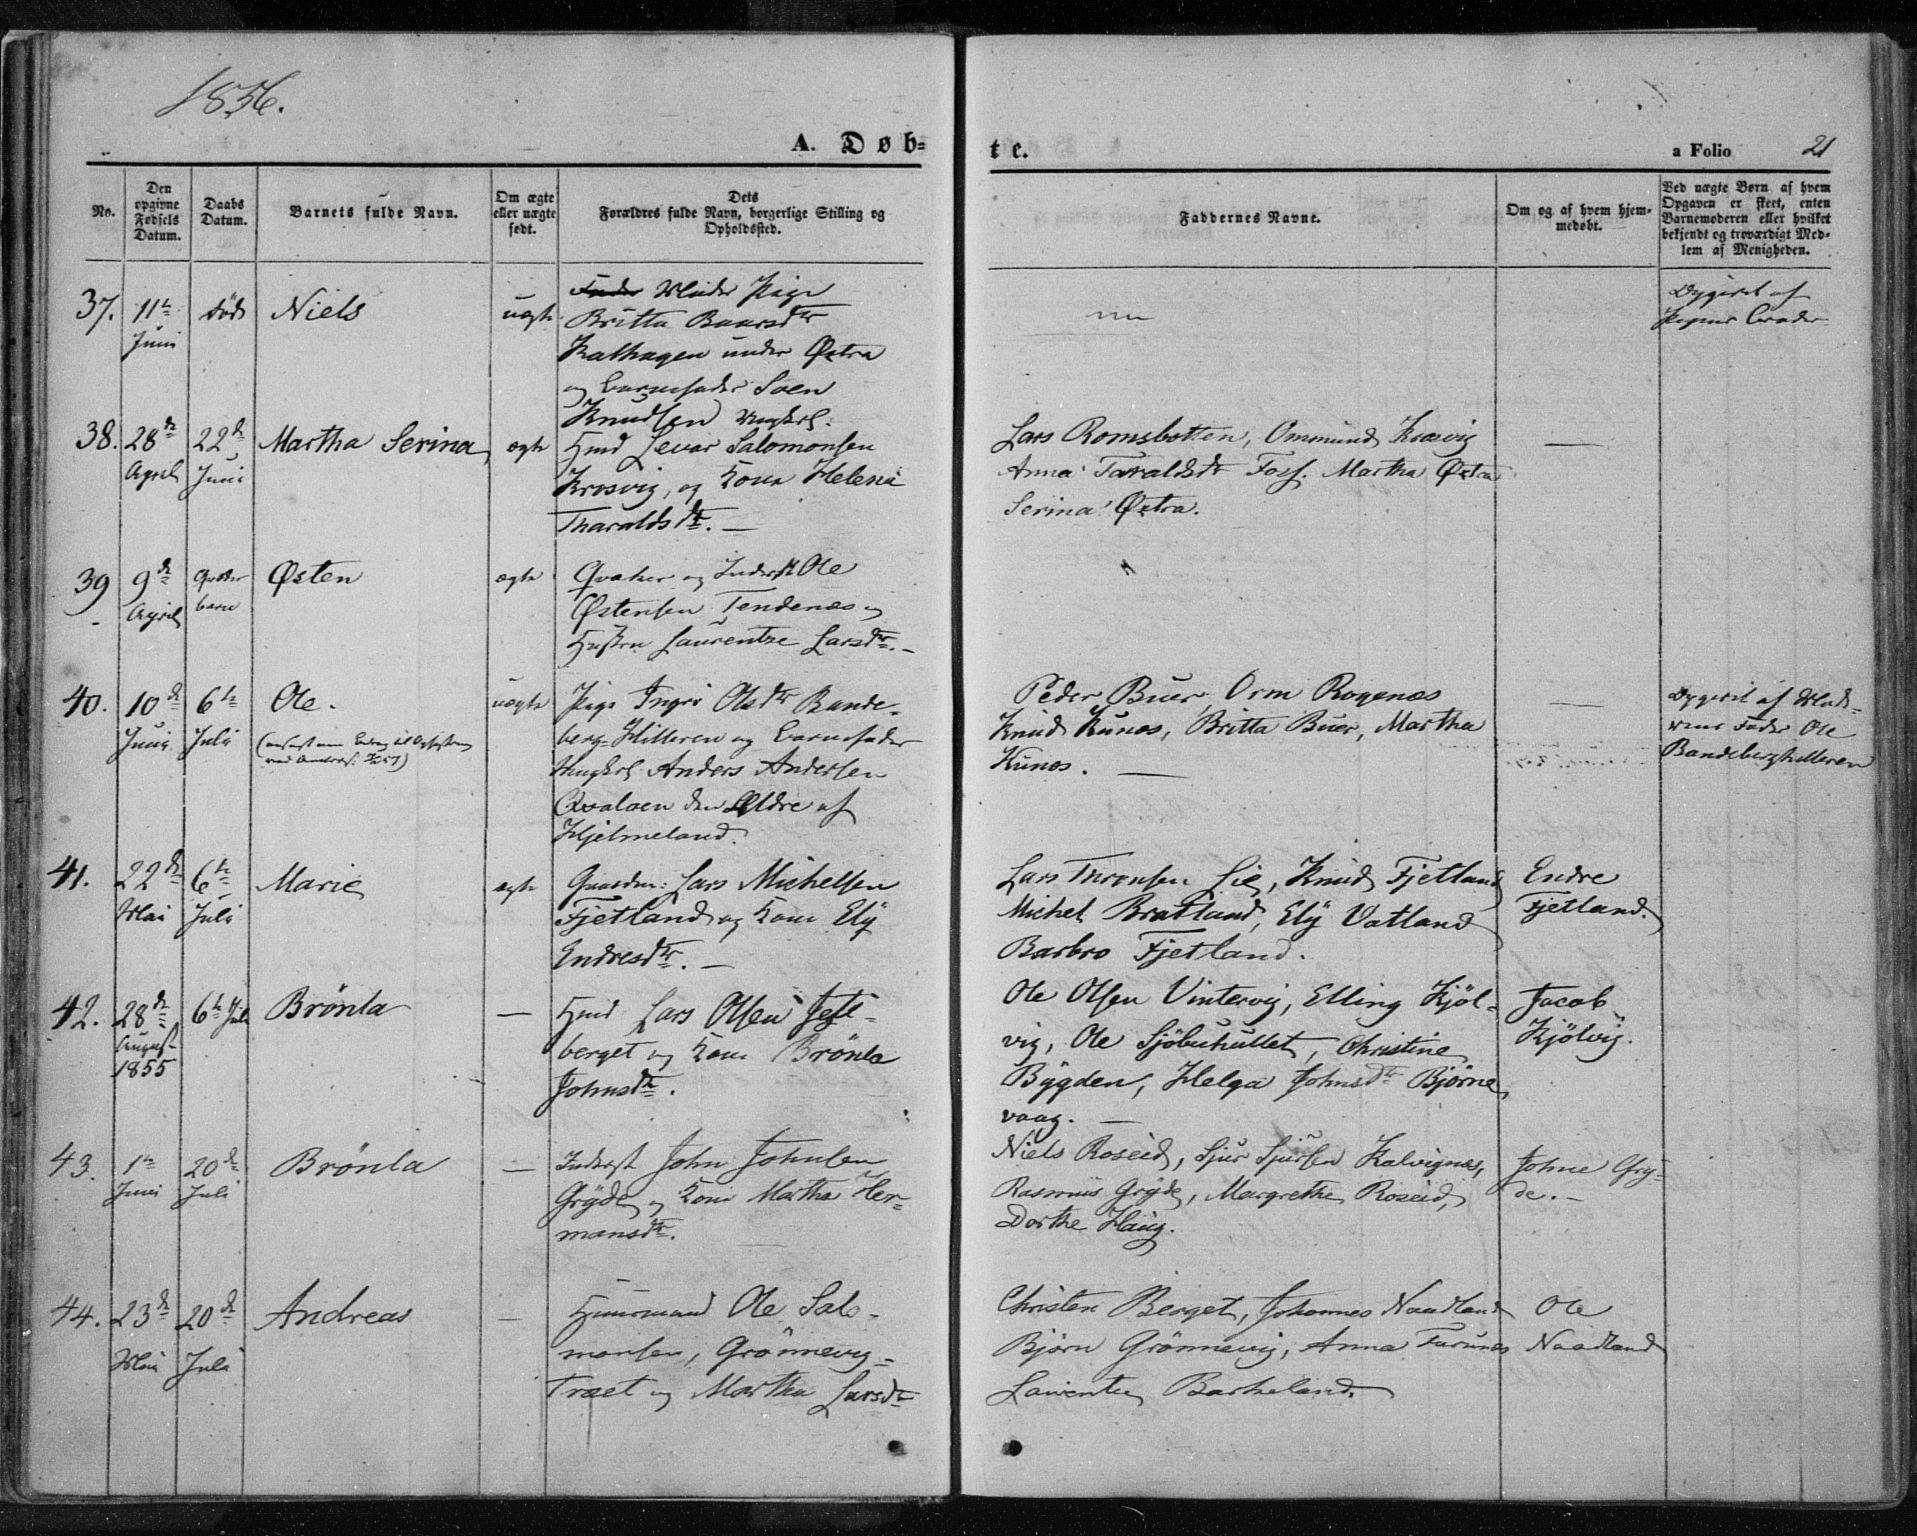 1856.
A. Døb-
te.
a Folio 21
No.
Den
opgivne
Fødsels
Datum.
Daabs
Datum.
Barnets fulde Navn.
Om ægte
eller uægte
født.
Dets
Forældres fulde Navn, borgerlige Stilling og
Opholdssted.
Faddernes Navne.
Om og af hvem hjem-
medøbt.
Ved uægte Børn af hvem
Opgaven er skeet, enten
Barnemoderen eller hvilket
bekjendt og troværdigt Med-
lem af Menigheden.
37. 11te Juni
død
Niels
uægte
Fader Moder Pige
Britta Baarsdtr
Kalhagen under Østra
og Barnefader Soen
Knudsen Ungkrl.
Opgivet af
38. 28de April
22de Juni
Martha Serina
ægte
Hmd Levar Salomonsen
Krosvig, og Kone Helena
Tharaldsdtr. —
Lars Romsbotten, Ommund Krosvig
Anna Taraldsdtr Foss. Martha Østra
Serina Østra.
—
39 9de April
Qvæker
barn
Østen
ægte
Qvæker og Inderst Ole
Østensen Tendenæs og
Hustru Laurentze Larsdtr. —
40. 10de Juni
6te Juli
Ole.
uægte
Pige Ingri Olsdtr Bande-
berg-Hilleren og Barnefader
Ungkrl Anders Andersen
Qvaloen den Ældre af
Hjelmeland.
Peder Buer, Orm Rogenæs
Knud Kunæs, Britta Buer, Martha
Kunæs. —
—
Opgivet af Mod-
rens Fader Ole
Bandeberghilleren
41. 22de Mai
6te Juli
Marie
ægte
Gaardm: Lars Michelsen
Fjetland og Kone Elÿ
Endresdtr. —
Lars Thronsen Lie, Knud Fjetland
Michel Bratland, Elÿ Vatland
Barbro Fjetland.
Endre
Fjetland.
42. 28de August 1855
6te Juli
Brönla
—
Hmd Lars Olsen Jejle-
berget og Kone Brönla
Johnsdtr.
Ole Olsen Vintervig, Elling Kjöl-
vig, Ole Sjöbuhullet, Christine
Bÿgden, Helga Johnsdtr Björne
vaag. —
Jacob
Kjölvig.
43. 1te Juni
20de Juli
Brönla
—
Inderst John Johnsen
Grÿde og Kone Martha Her-
mansdtr.
Niels Roseid, Sjur Sjursen Kalvignæs,
Rasmus Grÿde, Margrethe Roseid,
Dorthe Haug.
Johne Grÿ-
de. —
44. 23de Mai
20de Juli
Andreas
—
Huusmand Ole Salo-
monsen, Grönnevig-
Træet og Martha Larsdtr
Christen Berget, Johannes Naadland
Björn Grönnevig, Anna Furunæs
Laurentze Barkeland.
Ole
Naadland